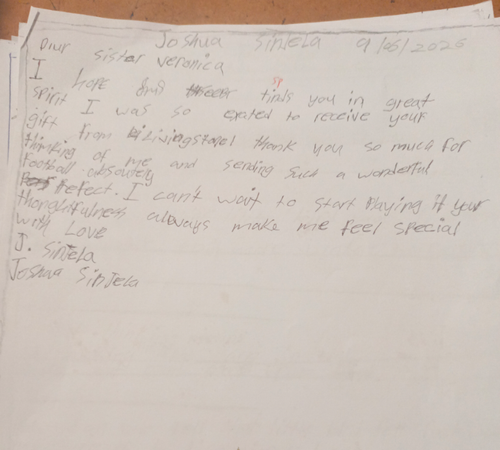 Joshua Sinjela 9/06/2026
Diur sister veronica
I hope and tinds you in great
sp
spirit I was so exated to receive your
gift from Livingstone I thank you so much for
thinking of me and sending such a wonderful
Football obsoutely
Perfect. I can't wait to start Playing it your
thoughtfulness always make me feel special
with Love
J. Sinjela
Joshua Sinjela